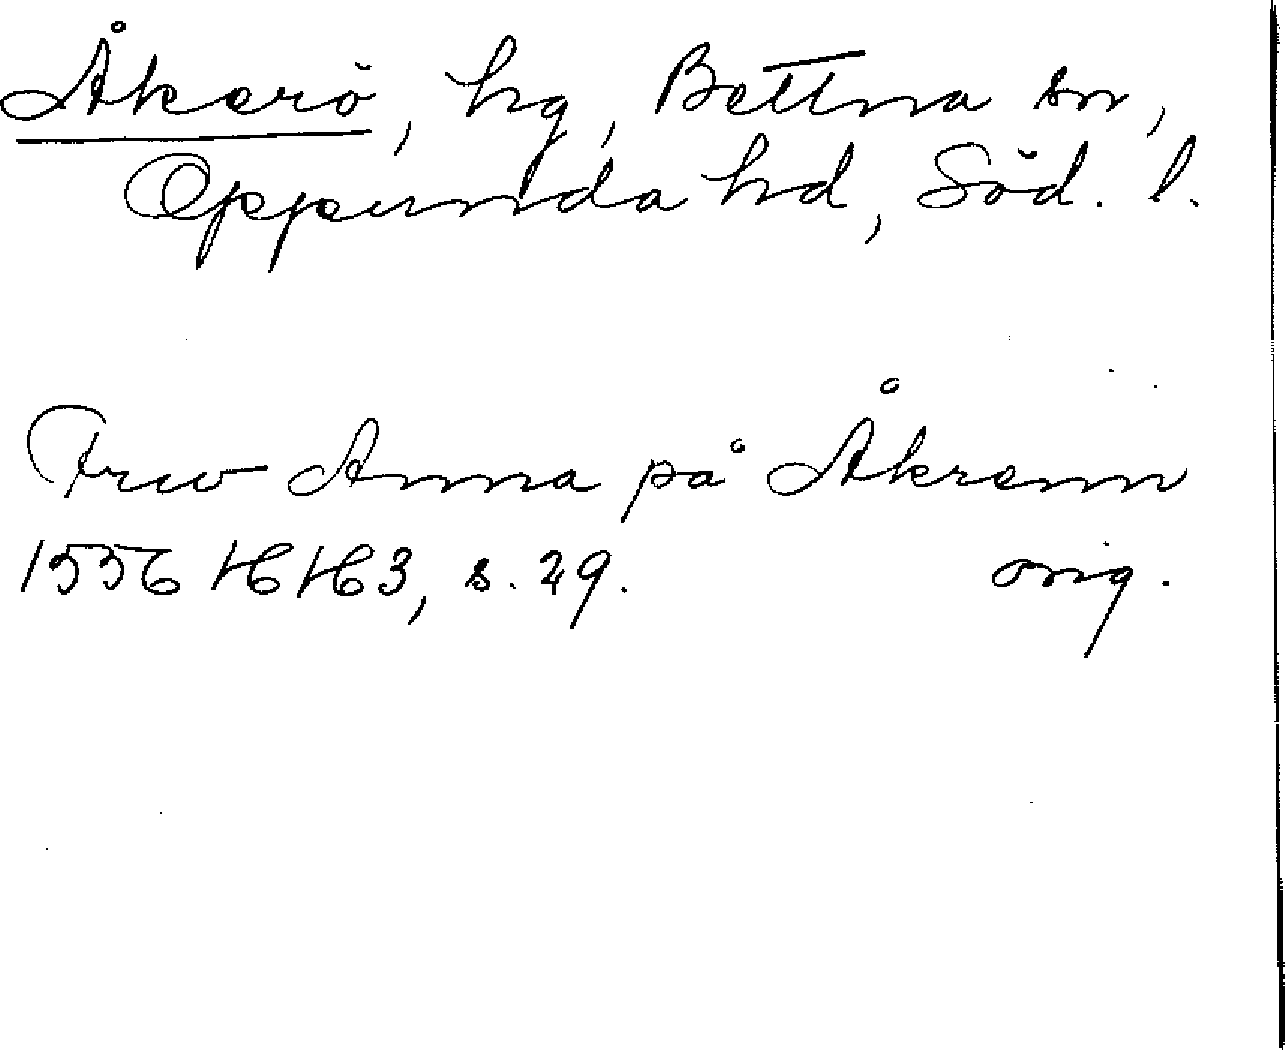 Åkerö, hg, Bettna sn,
Oppunda hd, Söd. l.
Frw Anna på Åkrenn
1556 HH 3, s. 29. orig.